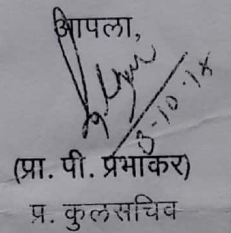 आपला,
3-10-18
(प्रा. पी. प्रभाकर)
प्र. कुलसचिव